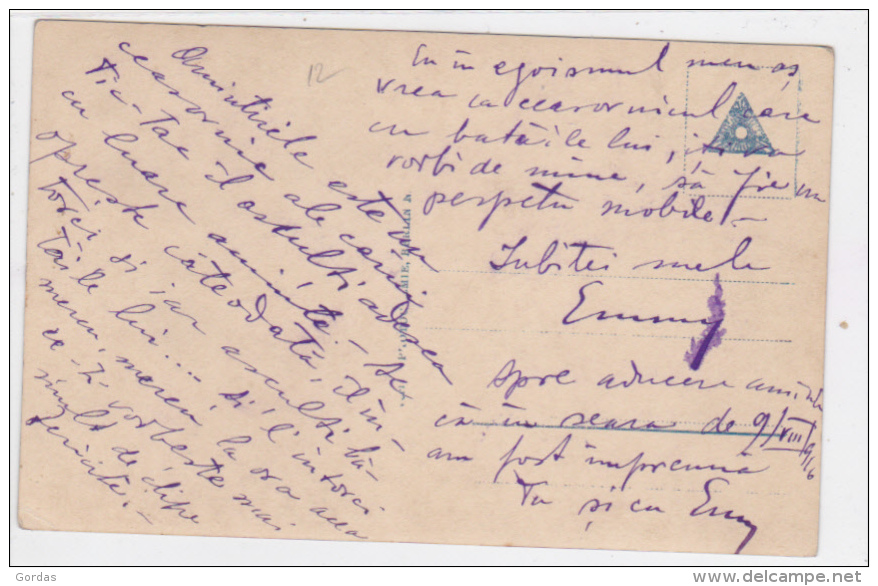 Amintirile este un
ceasornic ale carui adesea
Tic-Tac îl asculți adesea
cu luare aminte. – Se
oprește câteodată, îl în-
torci și iar asculti bă-
tăile lui... și, l'intorci
mereu, mereu, la ora aceea
ce-ți vorbește mai
mult de clipe
fericite. –
12
Eu în egoismul meu aș
vrea ca ceasornicul care
cu bătăile lui, iți va
vorbi de mine, să fie un
perpetu mobile –
Iubitei mele
Emmy
spre aducere aminte
că în seara de 9/VIII 916
am fost împreuna
Tu și cu Emy
MIE, BERLIN
Gordas
delcampe.net